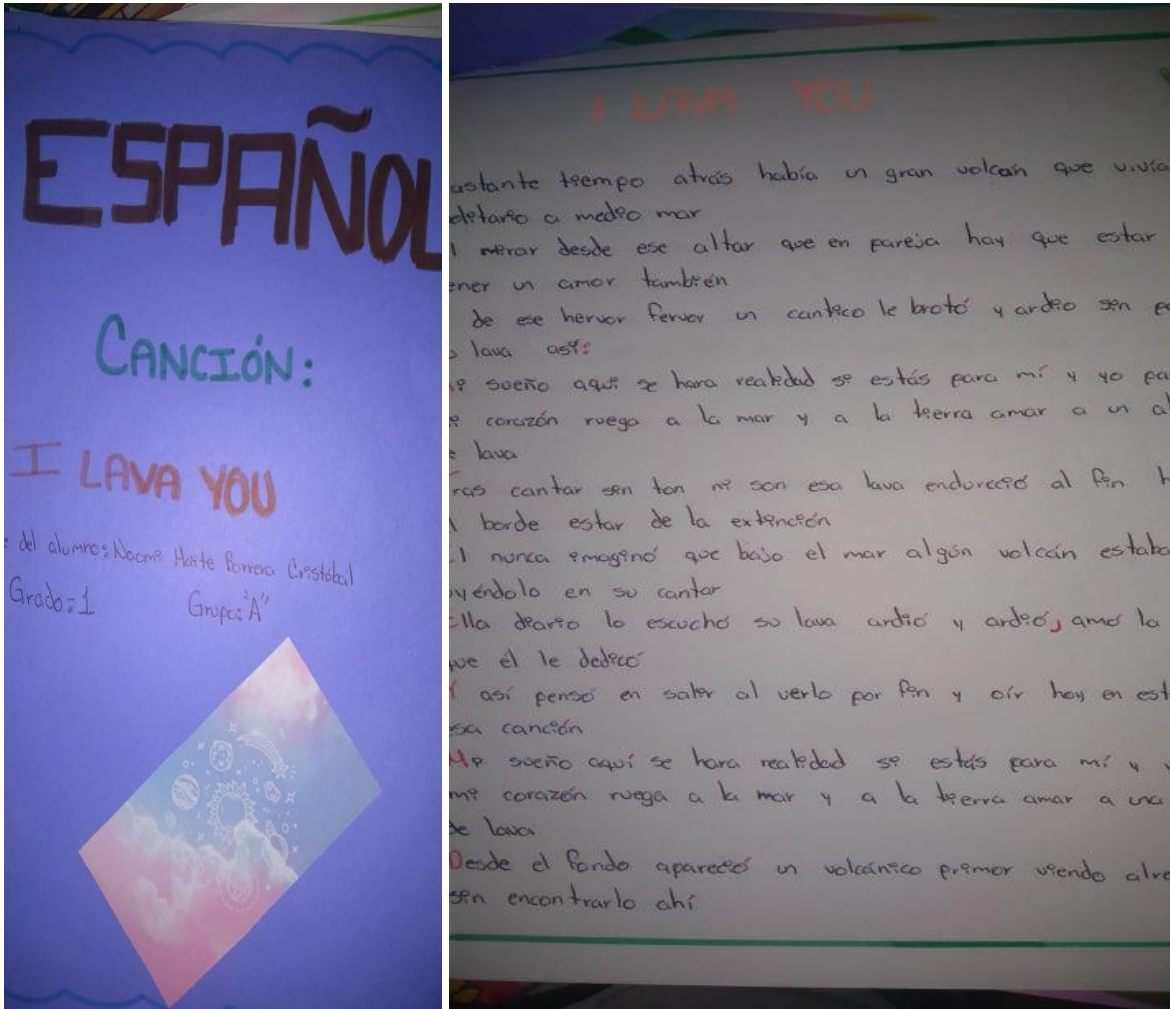 ESPAÑOL
CANCIÓN:
I LAVA YOU
del alumno: Noomi Marte Barrera Cristóbal
Grado: 1 Grupo: "A"
I LAVA YOU
astante tiempo atrás había un gran volcán que vivía
litario a medio mar
l mirar desde ese altar que en pareja hay que estar
ener un amor también
de ese hervor fervor un cantico le brotó y ardio sin
lava así:
sueño aquí se hara realidad si estás para mí y yo pa
corazón ruega a la mar y a la tierra amar a un al
lava
ras cantar sin ton ni son esa lava endureció al fin h
l borde estar de la extinción
l nunca imaginó que bajo el mar algún volcán estaba
yéndolo en su cantar
Ella diario lo escuchó su lava ardió y ardió, amó la
ue él le dedicó
Y así pensó en salir al verlo por fin y oír hoy en est
sa canción
Mi sueño aquí se hara realidad si estás para mí y y
mi corazón ruega a la mar y a la tierra amar a una
de lava
Desde el fondo apareció un volcánico primor viendo alre
sin encontrarlo ahí